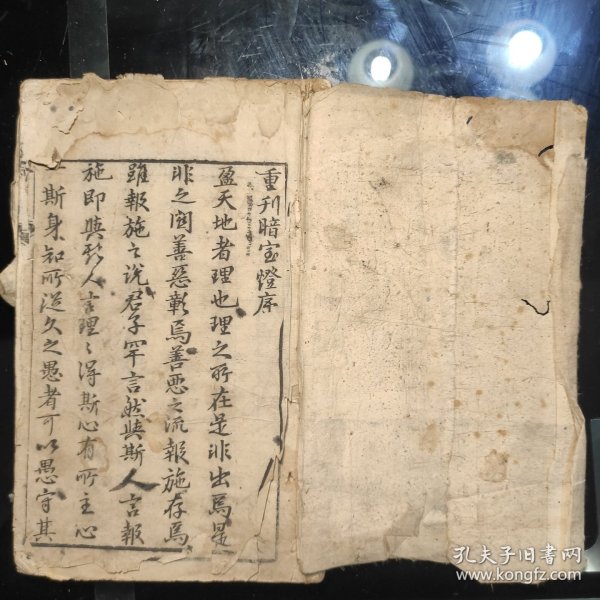 重刊暗室燈序
盈天地者理也理之所在是非出焉是
非之闾善惡彰焉善恶之流報施存焉
雖報施之说君子罕言然與斯人言報
施即與斯人言理〻得斯心有所主心
斯身知所從久之愚者可以愚守其
孔夫子旧书网
www.kongfz.com